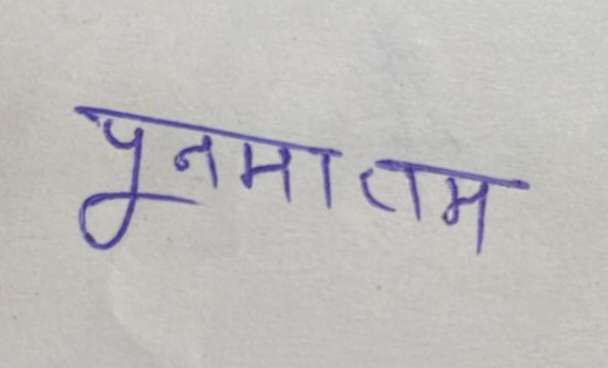 पूनमातम